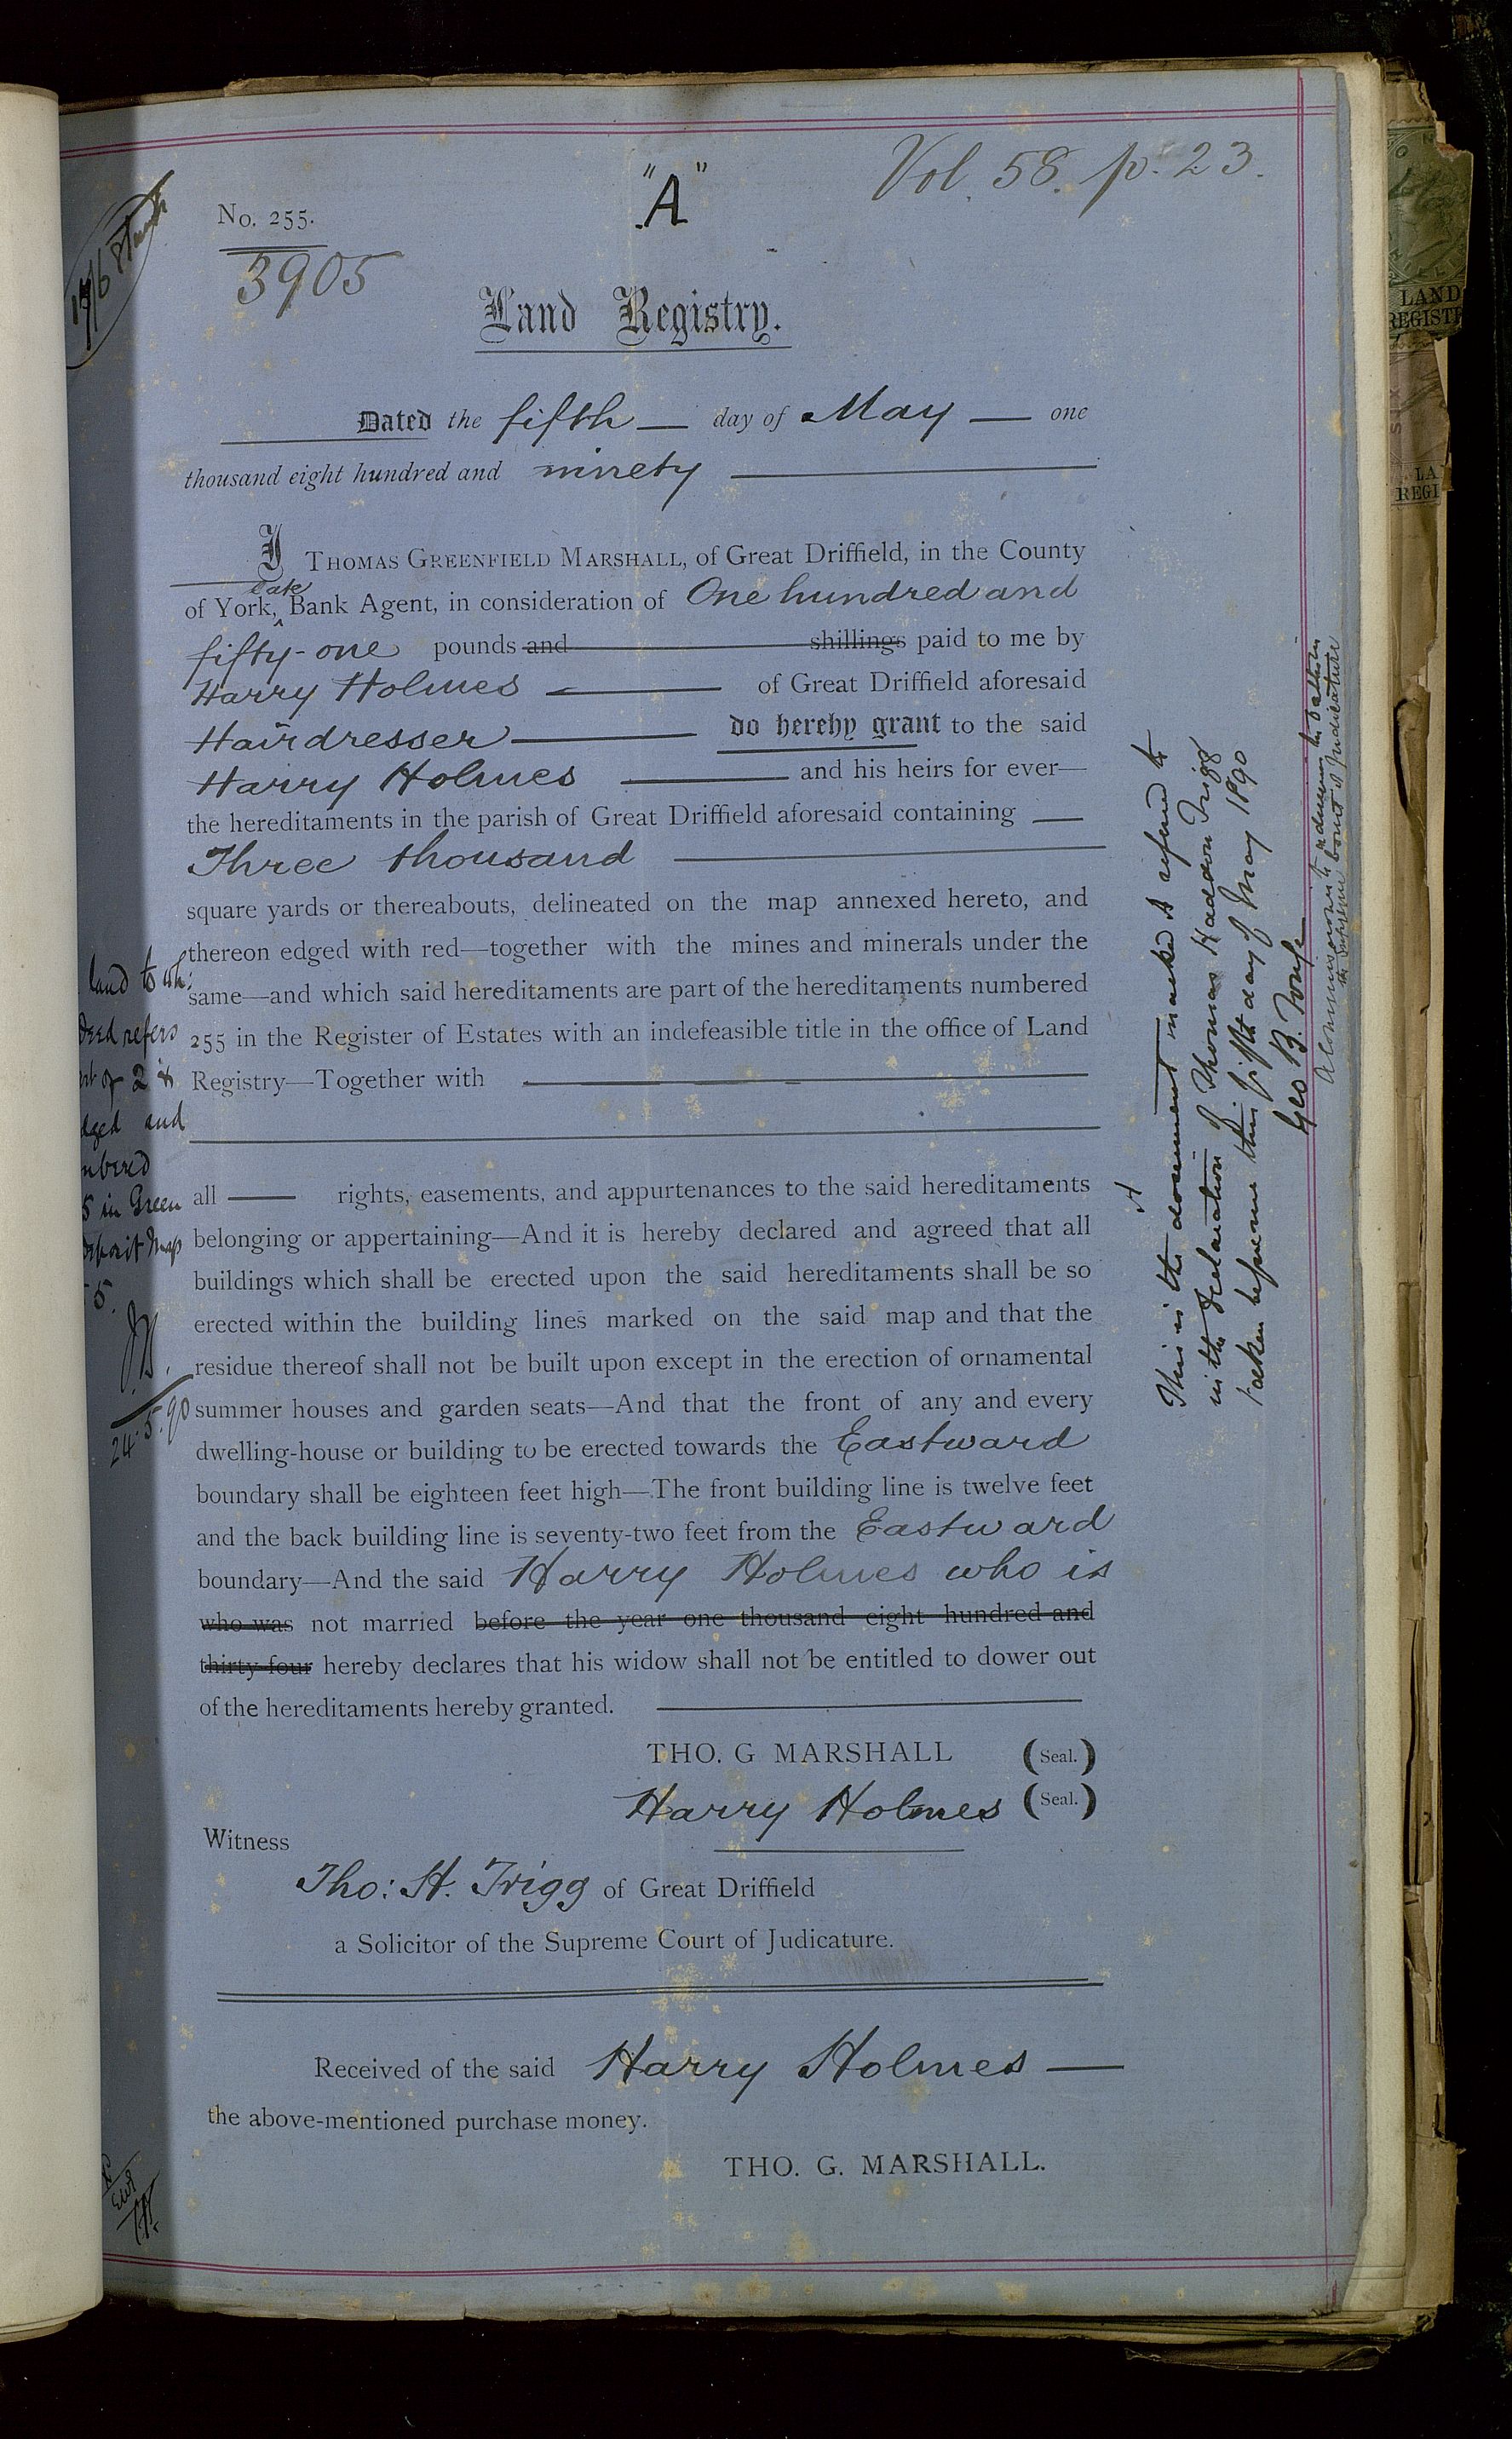 "A"
Vol. 58. p. 23.
No. 255.
3905
17/6
Land Registry.
Dated the fifth — day of May — one
thousand eight hundred and ninety
I THOMAS GREENFIELD MARSHALL, of Great Driffield, in the County
of York, late Bank Agent, in consideration of One hundred and
fifty-one pounds and shillings paid to me by
Harry Holmes — of Great Driffield aforesaid
Hairdresser — do hereby grant to the said
Harry Holmes — and his heirs for ever—
the hereditaments in the parish of Great Driffield aforesaid containing —
Three thousand
square yards or thereabouts, delineated on the map annexed hereto, and
thereon edged with red—together with the mines and minerals under the
same—and which said hereditaments are part of the hereditaments numbered
255 in the Register of Estates with an indefeasible title in the office of Land
Registry—Together with
all — rights, easements, and appurtenances to the said hereditaments
belonging or appertaining—And it is hereby declared and agreed that all
buildings which shall be erected upon the said hereditaments shall be so
erected within the building lines marked on the said map and that the
residue thereof shall not be built upon except in the erection of ornamental
summer houses and garden seats—And that the front of any and every
dwelling-house or building to be erected towards the Eastward
boundary shall be eighteen feet high—The front building line is twelve feet
and the back building line is seventy-two feet from the Eastward
boundary—And the said Harry Holmes who is
who was not married before the year one thousand eight hundred and
thirty-four hereby declares that his widow shall not be entitled to dower out
of the hereditaments hereby granted.
THO. G MARSHALL (Seal.)
Harry Holmes (Seal.)
Witness
Tho: H. Trigg of Great Driffield
a Solicitor of the Supreme Court of Judicature.
Received of the said Harry Holmes —
the above-mentioned purchase money.
THO. G. MARSHALL.
land to wh:
deed refers
of 2 &
and
in Green
deposit Map
5.
24.5.90
A
This is the document marked A referred to
in the declaration of Thomas Haddon Trigg
taken before me this fifth day of May 1890
Geo B. Tonge
A Commissioner to administer oaths in
the Supreme Court of Judicature
LAND
REGISTR
LA
REGI